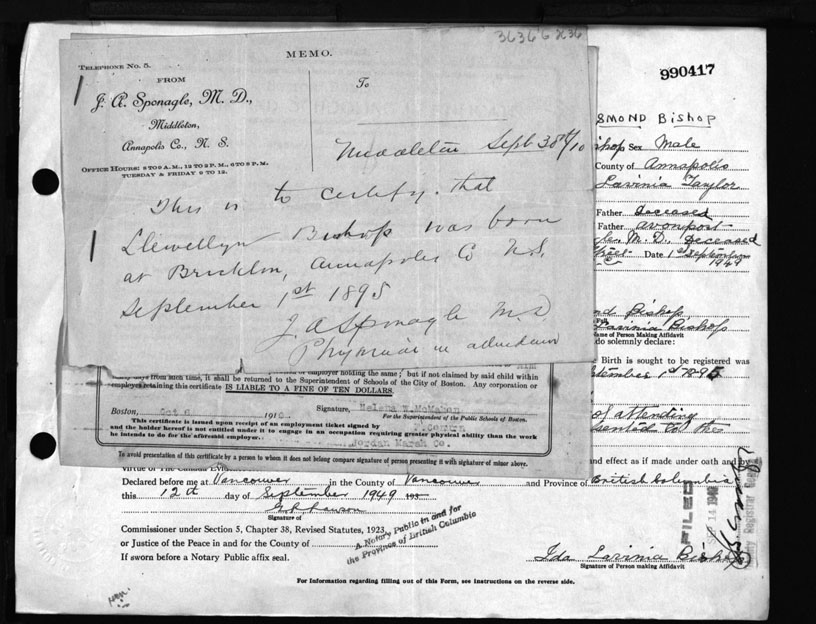 36366 836
MEMO.
TELEPHONE NO. 5.
FROM
J. A. Sponagle, M. D.,
Middleton,
Annapolis Co., N. S.
OFFICE HOURS: 8 TO 9 A.M., 12 TO 2 P.M., 6 TO 8 P.M.
TUESDAY & FRIDAY 9 TO 12.
To
Middleton Sept 30th/10
This is to certify that
Llewellyn Bishop was born
at Brickton, Annapolis Co N.S.
September 1st 1895
J. A Sponagle M.D
Physician in attendance
990417
SMOND BISHOP
Bishop Sex Male
County of Annapolis
Lavinia Taylor
Father Deceased
Father Avonport
M. D., Deceased
Date 1st September
1949
nd Bishop
Lavinia Bishop
Name of Person Making Affidavit
do solemnly declare:
e Birth is sought to be registered was
September 1st 1895
of attending
sented to the
and effect as if made under oath and by
of employer holding the same; but if not claimed by said child within
days from such time, it shall be returned to the Superintendent of Schools of the City of Boston. Any corporation or
employer retaining this certificate IS LIABLE TO A FINE OF TEN DOLLARS.
Boston, Oct 6 1910. Signature, Helena M. McMahon
For the Superintendent of the Public Schools of Boston.
This certificate is issued upon receipt of an employment ticket signed by
and the holder hereof is not entitled under it to engage in an occupation requiring greater physical ability than the work
he intends to do for the aforesaid employer.
Jordan Marsh Co.
To avoid presentation of this certificate by a person to whom it does not belong compare signature of person presenting it with signature of minor above.
virtue of The Canada Evi
Declared before me at Vancouver in the County of Vancouver and Province of British Columbia
this 12th day of September 1949 195
Signature of
Commissioner under Section 5, Chapter 38, Revised Statutes, 1923,
or Justice of the Peace in and for the County of
If sworn before a Notary Public affix seal.
A Notary Public in and for
the Province of British Columbia
FILED
SEP 14 1949
Registrar
Ida Lavinia Bishop
Signature of Person making Affidavit
For Information regarding filling out of this Form, see instructions on the reverse side.